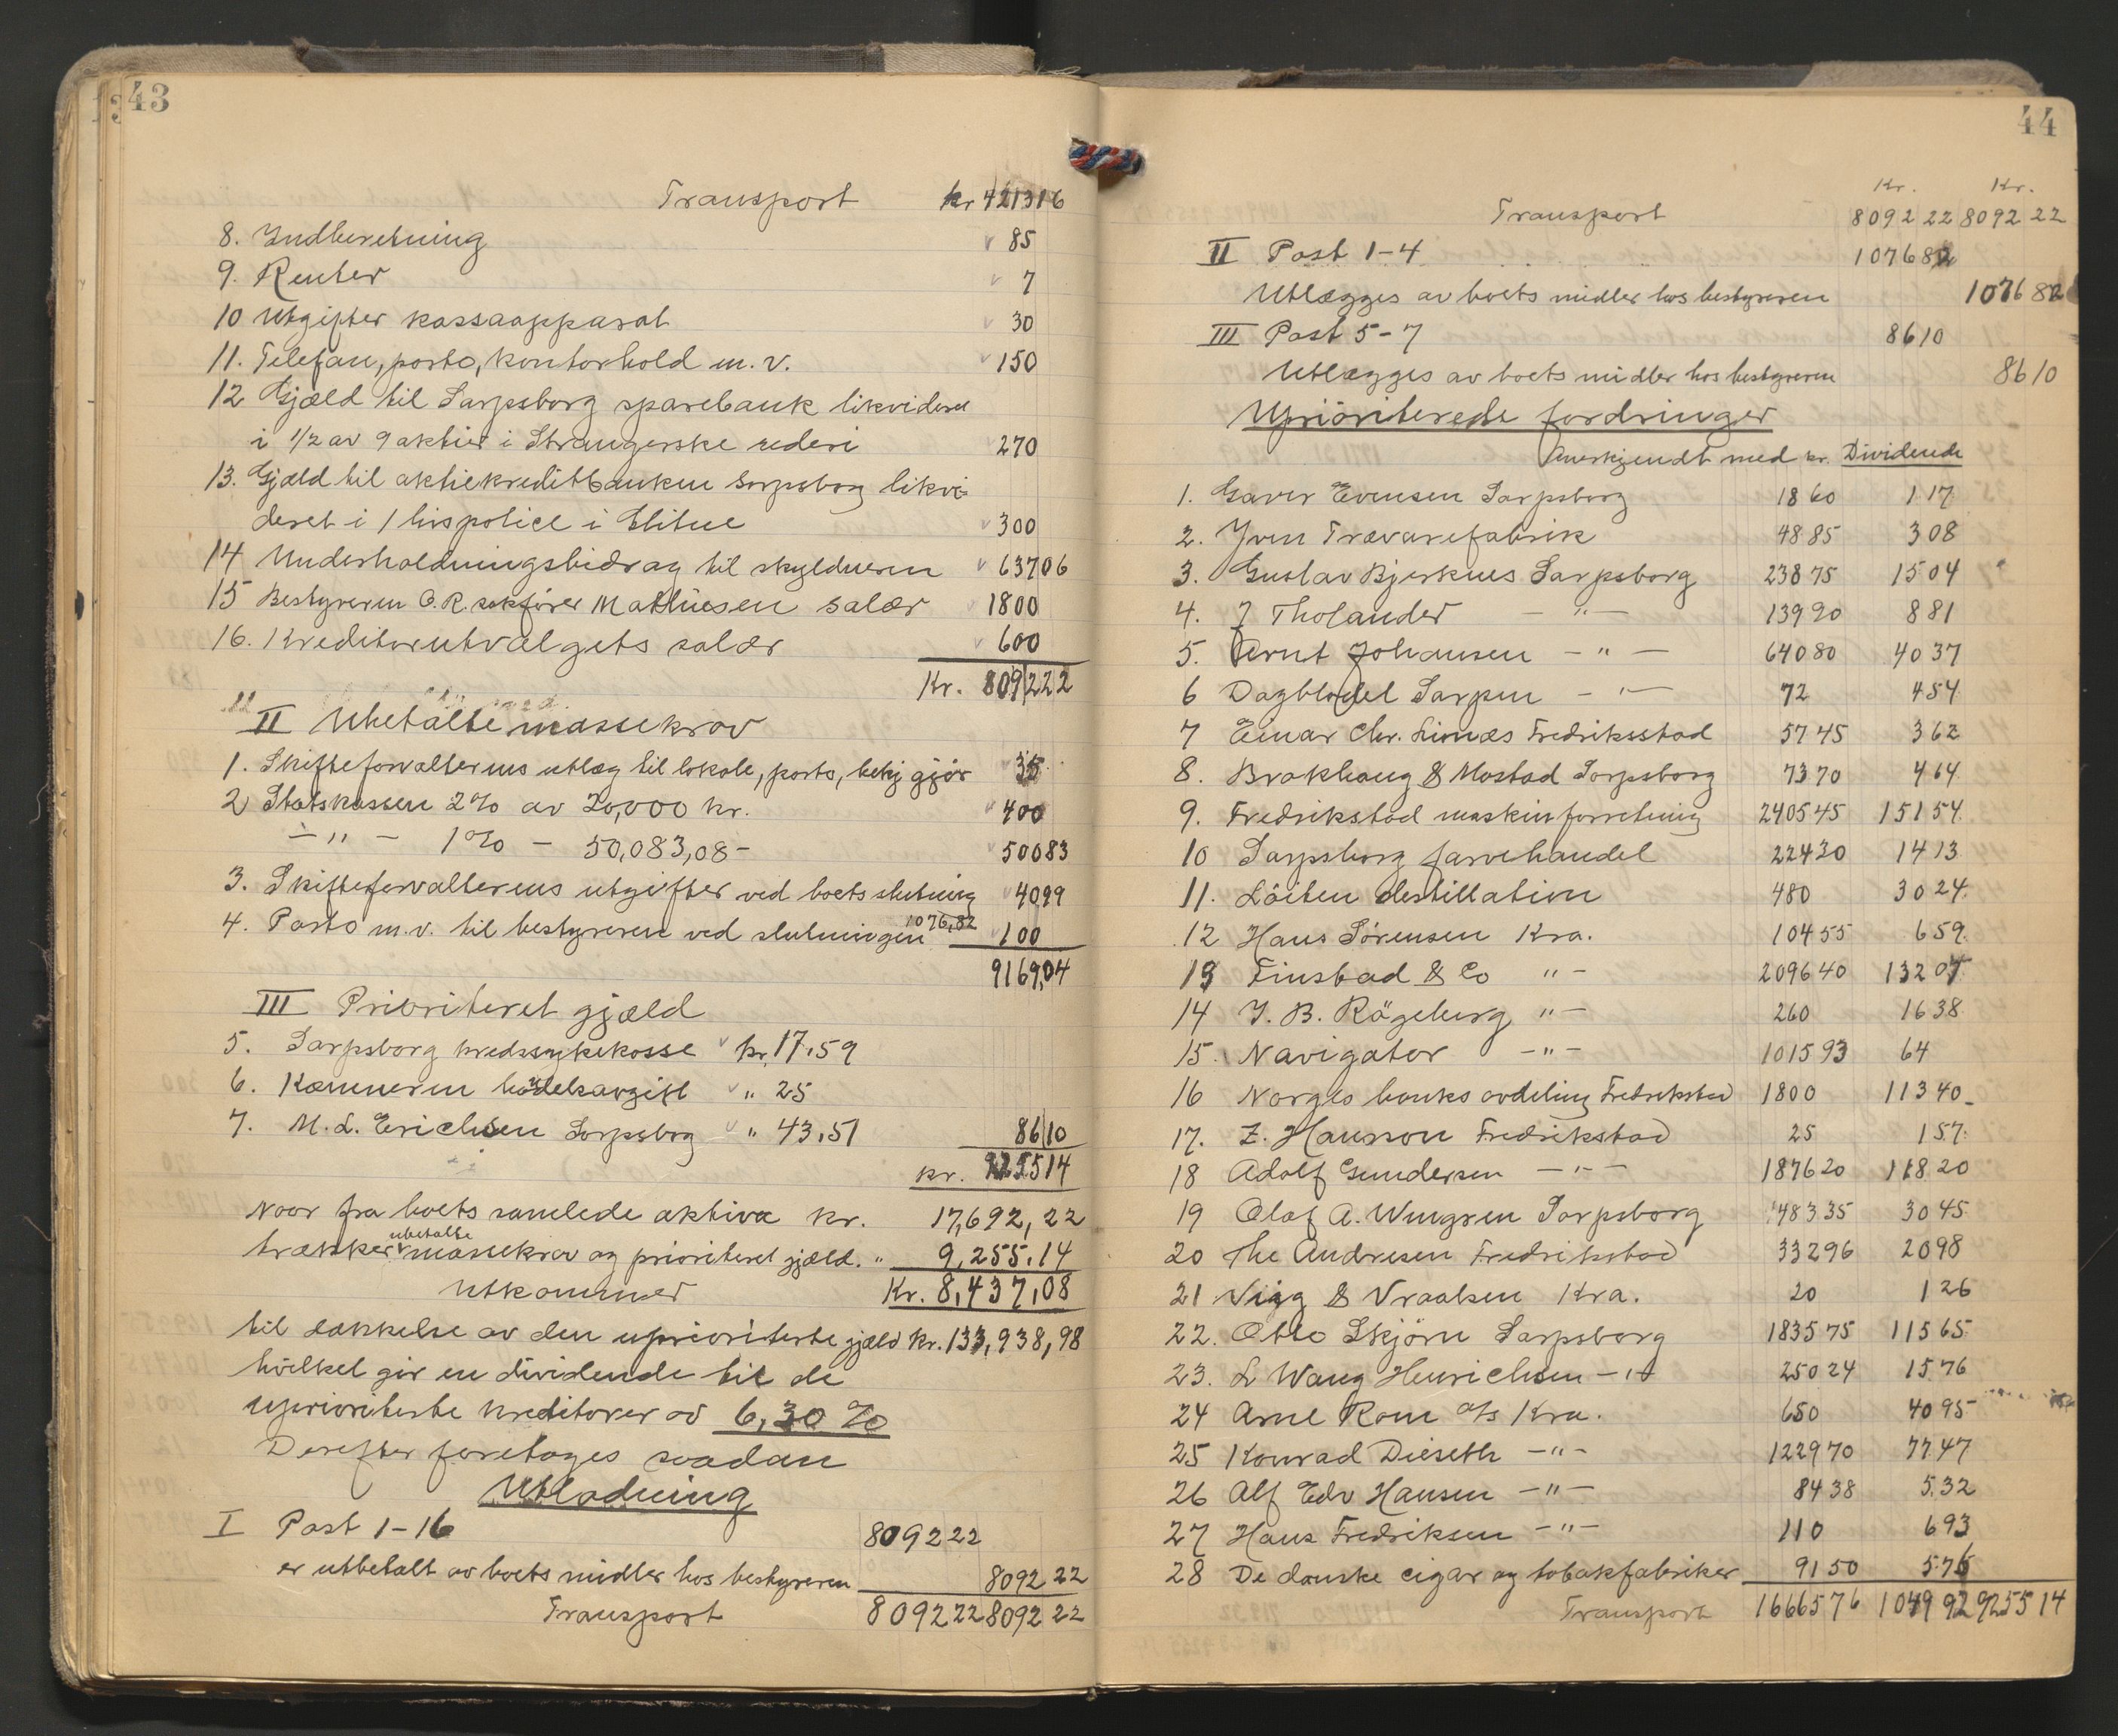 43
Transport kr 421316
8. Indberetning 85
9. Renter 7
10 Utgifter kassaapparat 30
11. Telefon, porto, kontorhold m. v. 150
12 Gjæld til Sarpsborg sparebank likvideret
i 1/2 av 9 aktier i Strangerske rederi 270
13. Gjæld til aktiekreditbanken Sarpsborg likvi-
deret i 1 livspolice i 300
14 Underholdningsbidrag til skyldneren 63706
15 Bestyreren O. R. sakfører Mathiesen salær 1800
16. Kreditorutvalgets salær 600
Kr. 809222
II Ubetalte massekrav
1. Skifteforvalterens utlæg til lokale, porto, bekj gjör 35
2 Statskassen 2% av 20,000 kr. 400
-"- 1% - 50,083,08- 50083
3. Skifteforvalterens utgifter ved boets slutning 4099
4. Porto m.v. til bestyreren ved slutningen 1076,82 100
9169,04
III Prioriteret gjæld
5. Sarpsborg kredssykekasse kr. 17,59
6. Kæmneren handelsavgift " 25
7. M. L. Erichsen Sarpsborg " 43,51 8610
kr. 925514
Naar fra boets samlede aktiva kr. 17,692,22
trækkes ubetalte massekrav og prioriteret gjæld. " 9,255.14
Utkommer Kr. 8,437,08
til dækkelse av den uprioriterte gjæld kr. 133,938,98
hvilket gir en dividende til de
uprioriterte kreditorer av 6,30 %
Derefter foretages saadan
Utlodning
I Post 1-16 809222
er utbetalt av boets midler hos bestyreren 8092 22
Transport 809222 8092 22
44
Kr. Kr.
Transport 8092 22 8092 22
II Post 1-4 107682
Utlægges av boets midler hos bestyreren 1076 82
III Post 5-7 8610
Utlægges av boets midler hos bestyreren 8610
Uprioriterede fordringer
Anerkjendt med kr. Dividende
1. Gaver Evensen Sarpsborg 1860 117
2. Yven Trævarefabrik 4885 308
3. Gustav Bjerknes Sarpsborg 23875 1504
4. J Tholander -"- 13920 881
5. Arnt Johansen -"- 64080 4037
6 Dagbladet Sarpen -"- 72 454
7 Einar Chr. Limæs Fredriksstad 5745 362
8. Brakhaug & Mostad Sarpsborg 7370 464
9. Fredrikstad maskinforretning 240545 15154
10 Sarpsborg farvehandel 22430 1413
11. Löiten destillation 480 3024
12 Hans Sörensen Kra. 10455 659
13 Finstad & Co "- 209640 13207
14 J. B. Rögeberg "- 260 1638
15. Navigator -"- 101593 64
16 Norges banks avdeling Fredrikstad 1800 11340
17. Z. Hansson Fredrikstad 25 157
18 Adolf Gundersen -"- 187620 11820
19 Olaf A. Wingren Sarpsborg 48335 3045
20 The Andresen Fredrikstad 33296 2098
21 Viig & Vraalsen Kra. 20 126
22. Otto Skjörn Sarpsborg 183575 11565
23. L Wang Henrichsen -"- 25024 1576
24 Arne Rom a/s Kra. 650 4095
25 Konrad Dieseth -"- 122970 7747
26 Alf Edv Hansen -"- 8438 532
27 Hans Fredriksen -"- 110 693
28 De danske cigar og tobakfabriker 9150 576
Transport 1666576 104992 925514